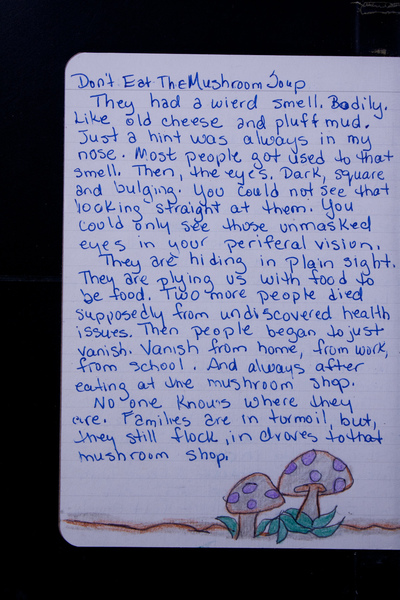 Don't Eat The Mushroom Soup
They had a wierd smell. Bodily.
Like old cheese and pluff mud.
Just a hint was always in my
nose. Most people got used to that
smell. Then, the eyes. Dark, square
and bulging. You could not see that
looking straight at them. You
could only see those unmasked
eyes in your periferal vision.
They are hiding in plain sight.
They are plying us with food to
be food. Two more people died
supposedly from undiscovered health
issues. Then people began to just
vanish. Vanish from home, from work,
from school. And always after
eating at the mushroom shop.
No one knows where they
are. Families are in turmoil, but,
they still flock, in droves to that
mushroom shop.